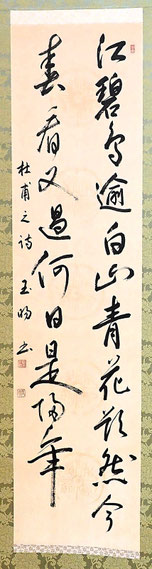 江碧鳥逾白山青花欲然今
春看又過何日是帰年
杜甫之詩 玉 書